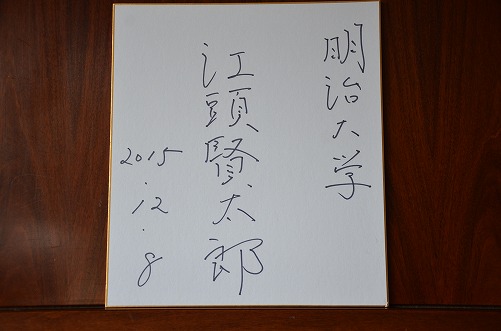 明治大学
江頭賢太郎
2015.12.8